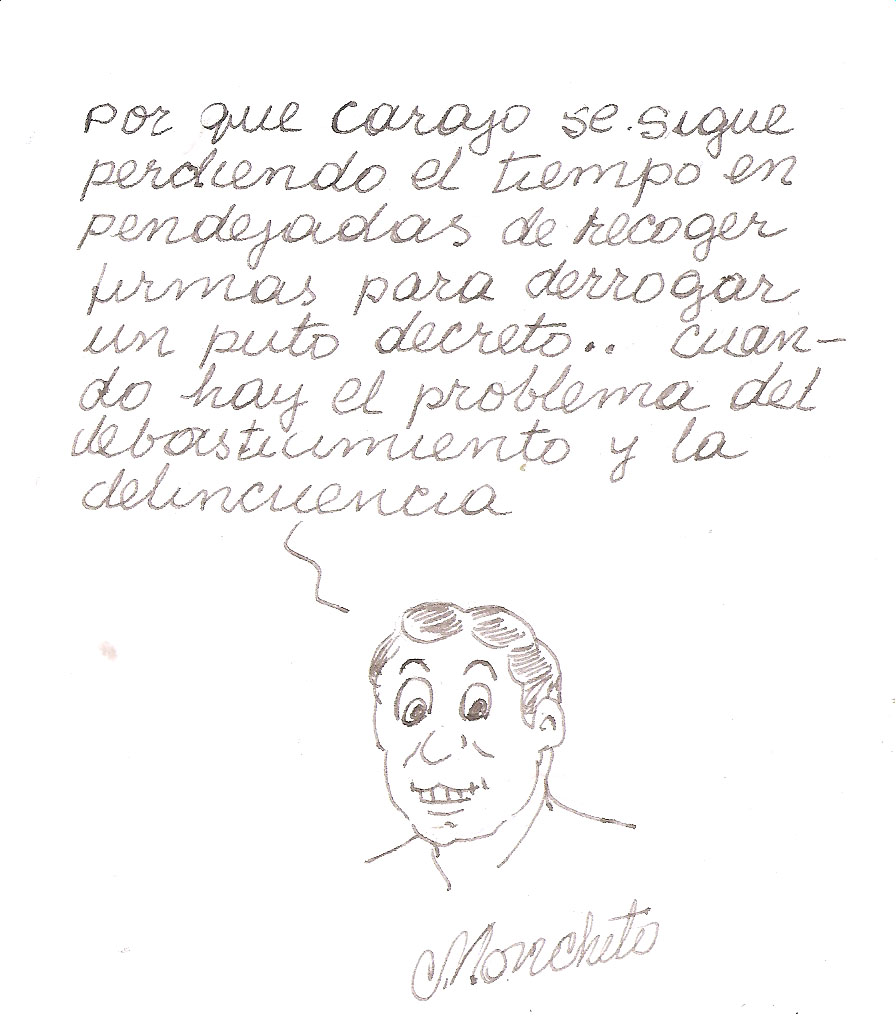 por que carajo se. sigue
perdiendo el tiempo en
pendejadas de recoger
firmas para derrogar
un puto decreto.. cuan-
do hay el problema del
debastiumiento y la
delincuencia
Monchito